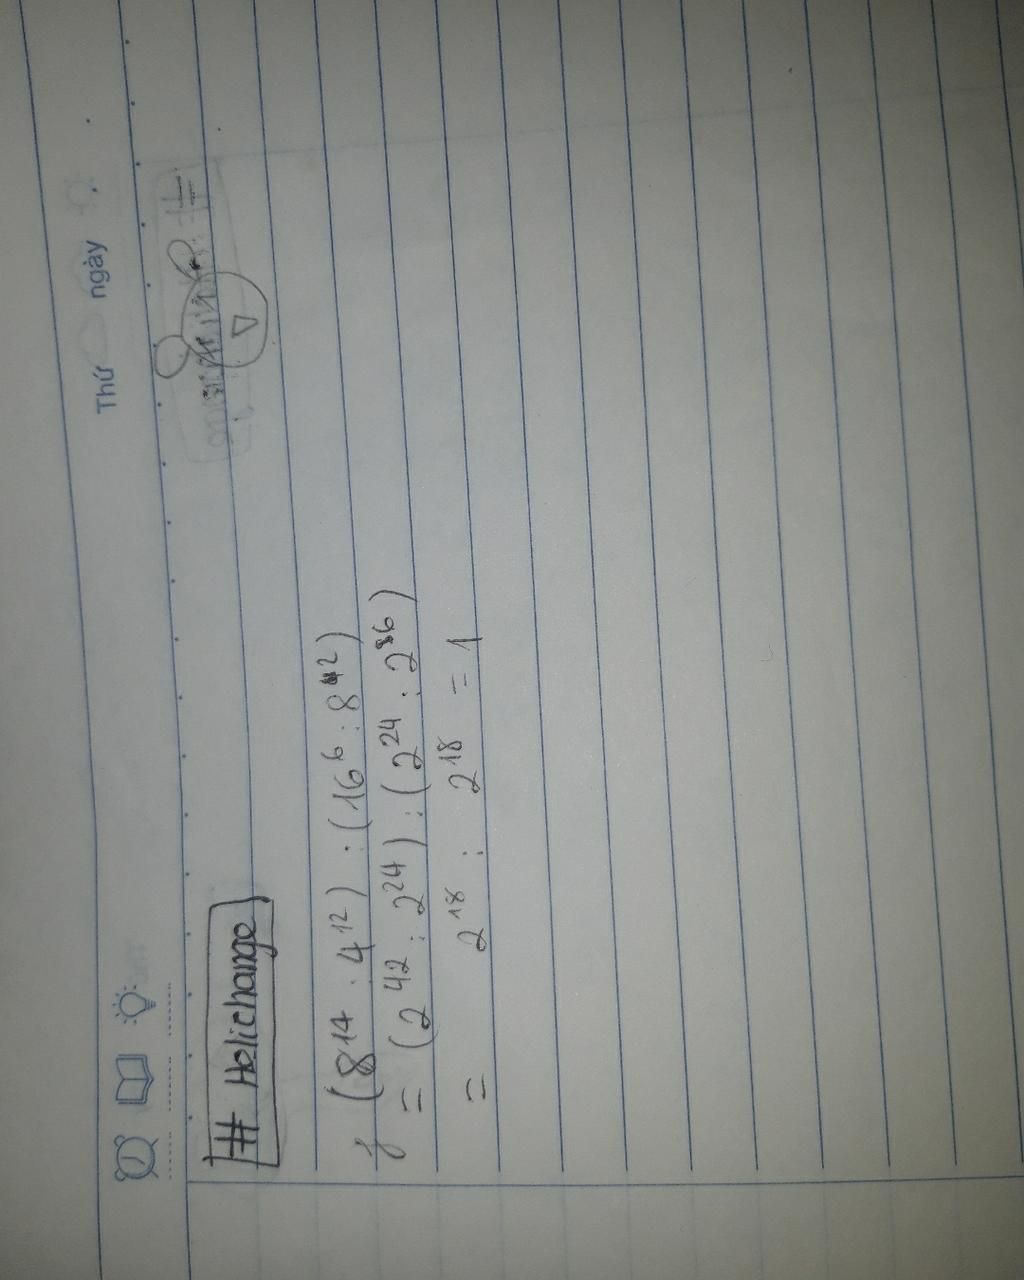 Thứ ngày
# Holichange
(8¹⁴ : 4¹²) : (16⁶ : 8⁴²)
= (2⁴² : 2²⁴) : (2²⁴ : 2³⁶)
= 2¹⁸ : 2¹⁸ = 1